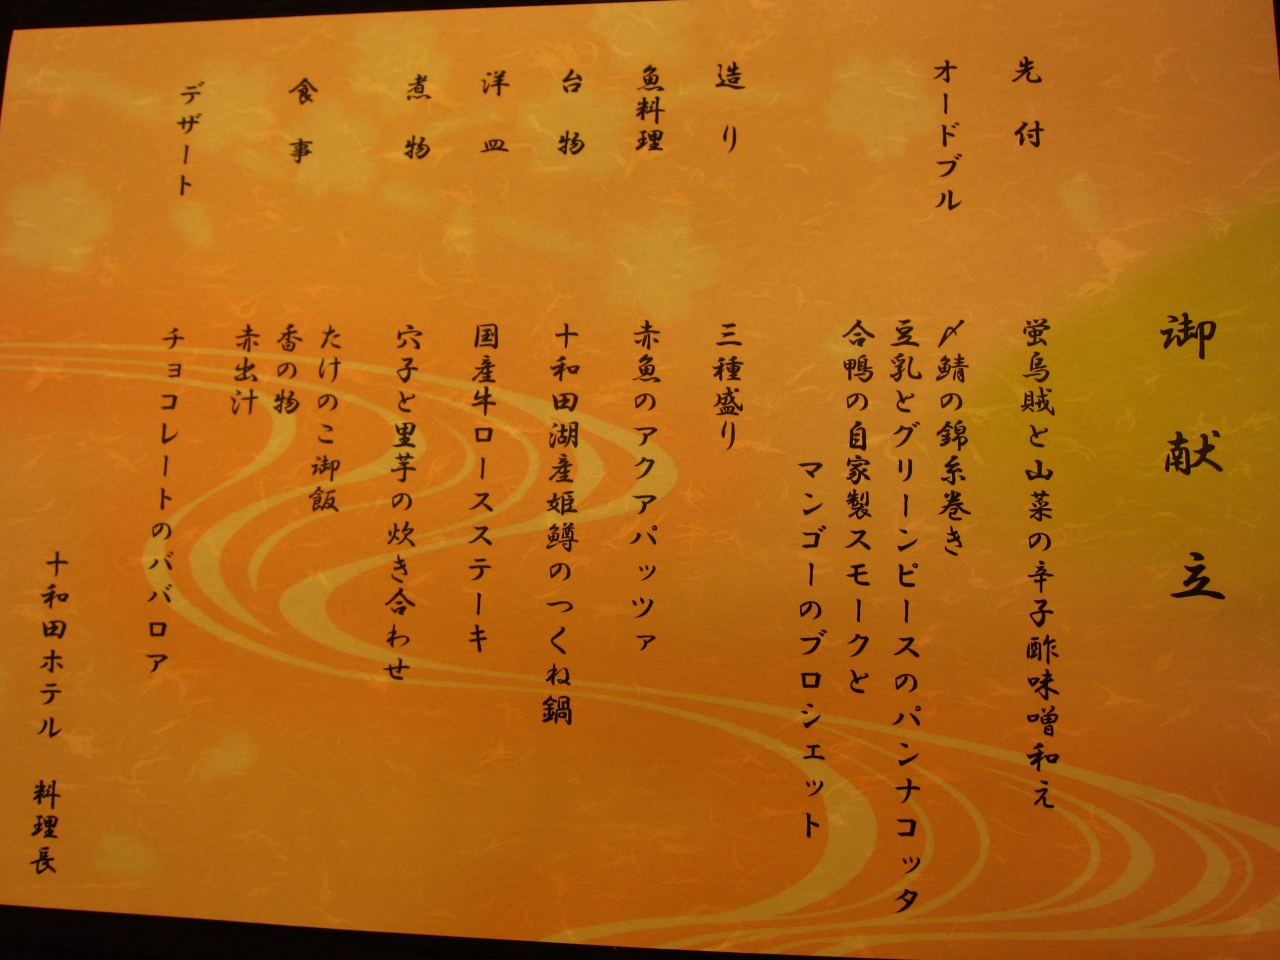 御献立
先付
蛍烏賊と山菜の辛子酢味噌和え
オードブル
〆鯖の錦糸巻き
豆乳とグリーンピースのパンナコッタ
合鴨の自家製スモークと
マンゴーのブロシェット
造り
三種盛り
魚料理
赤魚のアクアパッツァ
台物
十和田湖産姫鱒のつくね鍋
洋皿
国産牛ロースステーキ
煮物
穴子と里芋の炊き合わせ
食事
たけのこ御飯
香の物
赤出汁
デザート
チョコレートのババロア
十和田ホテル 料理長